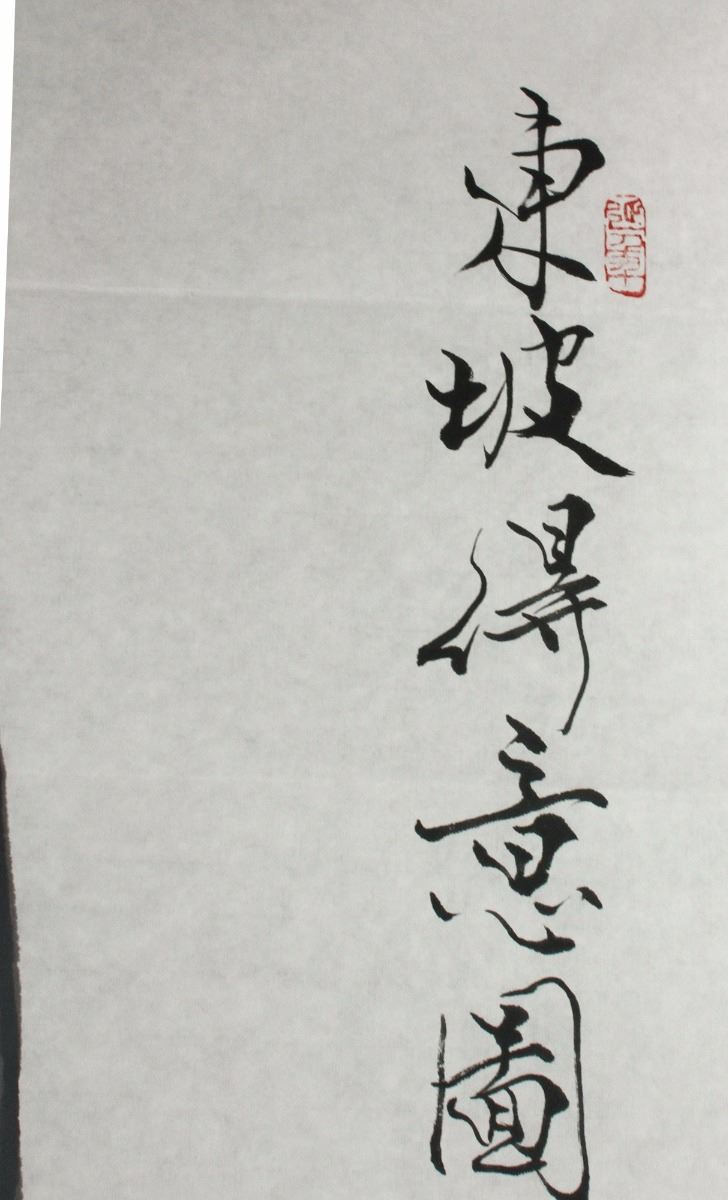 東坡得意圖